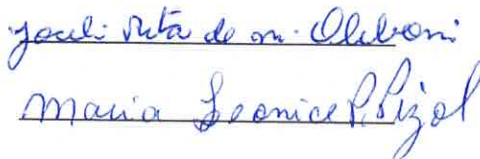 Joceli Rita de m. Oliboni
Maria Leonice P. Pizol